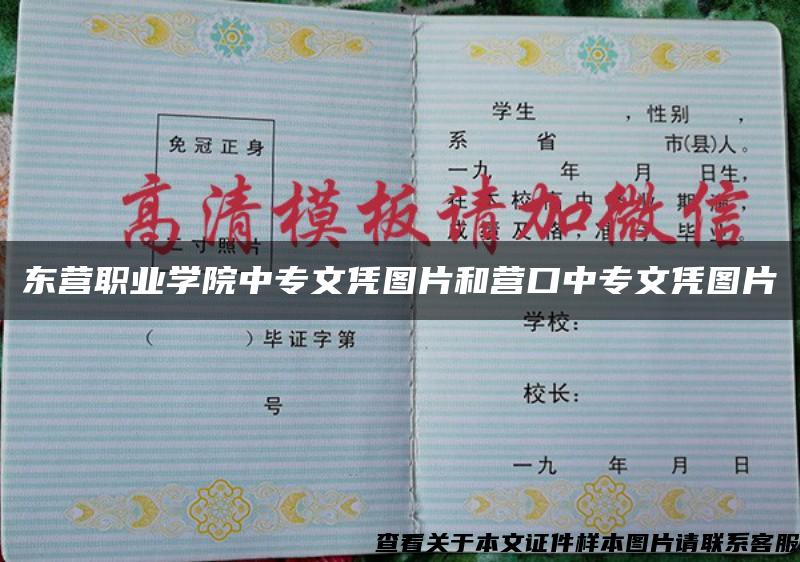 学生　　　，性别　，
系　　省　　　市(县)人。
免冠正身
一九　　年　　月　　日生，
高清模板请加微信
二寸照片
东营职业学院中专文凭图片和营口中专文凭图片
学校：
（　　　）毕证字第
校长：
号
一九　　年　　月　　日
查看关于本文证件样本图片请联系客服